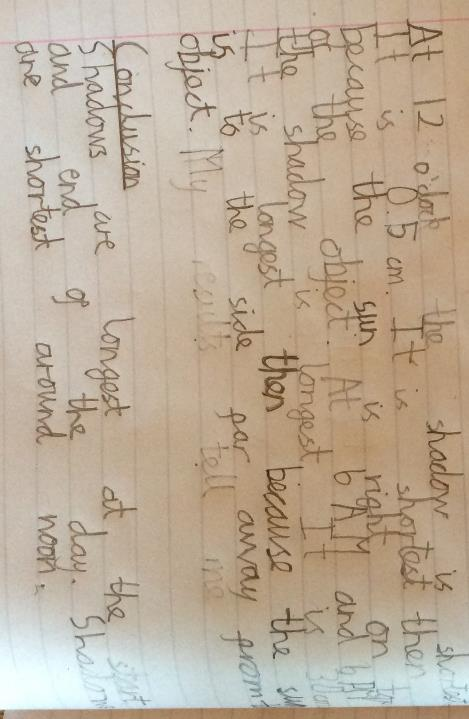 At 12 o'clock the shadow is shortest
It is 0.5 cm. It is shortest then
because the sun is right on top
of the object. At 6 AM and 6 PM
the shadow is longest It is 30cm
It is longest then because the sun
is to the side far away from
object. My results tell me
Conclusion
Shadows are longest at the start
and end of the day. Shadows
are shortest around noon.